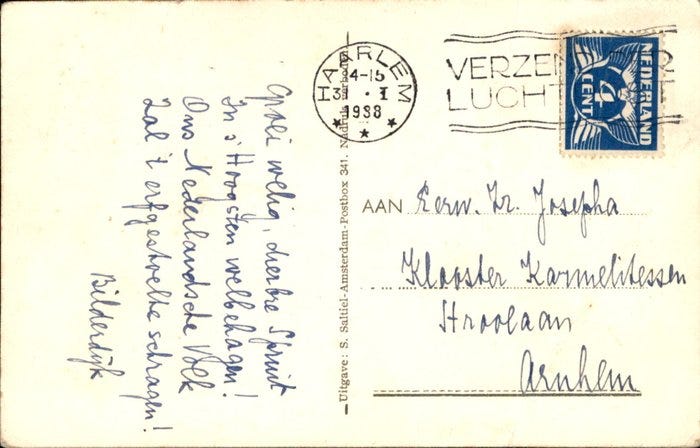 Groei welig, dierbre Spruit
In s'Hoogsten welbehagen!
Ons Nederlandsche Volk
Zal 't erfgestoelte schragen!
Bilderdijk
Uitgave: S. Saltiel-Amsterdam-Postbox 341. Nadruk verboden
HAARLEM
4-15
I
1938
NEDERLAND
CENT
AAN Eerw. Zr. Josepha
Klooster Karmelitessen
Stroolaan
Arnhem